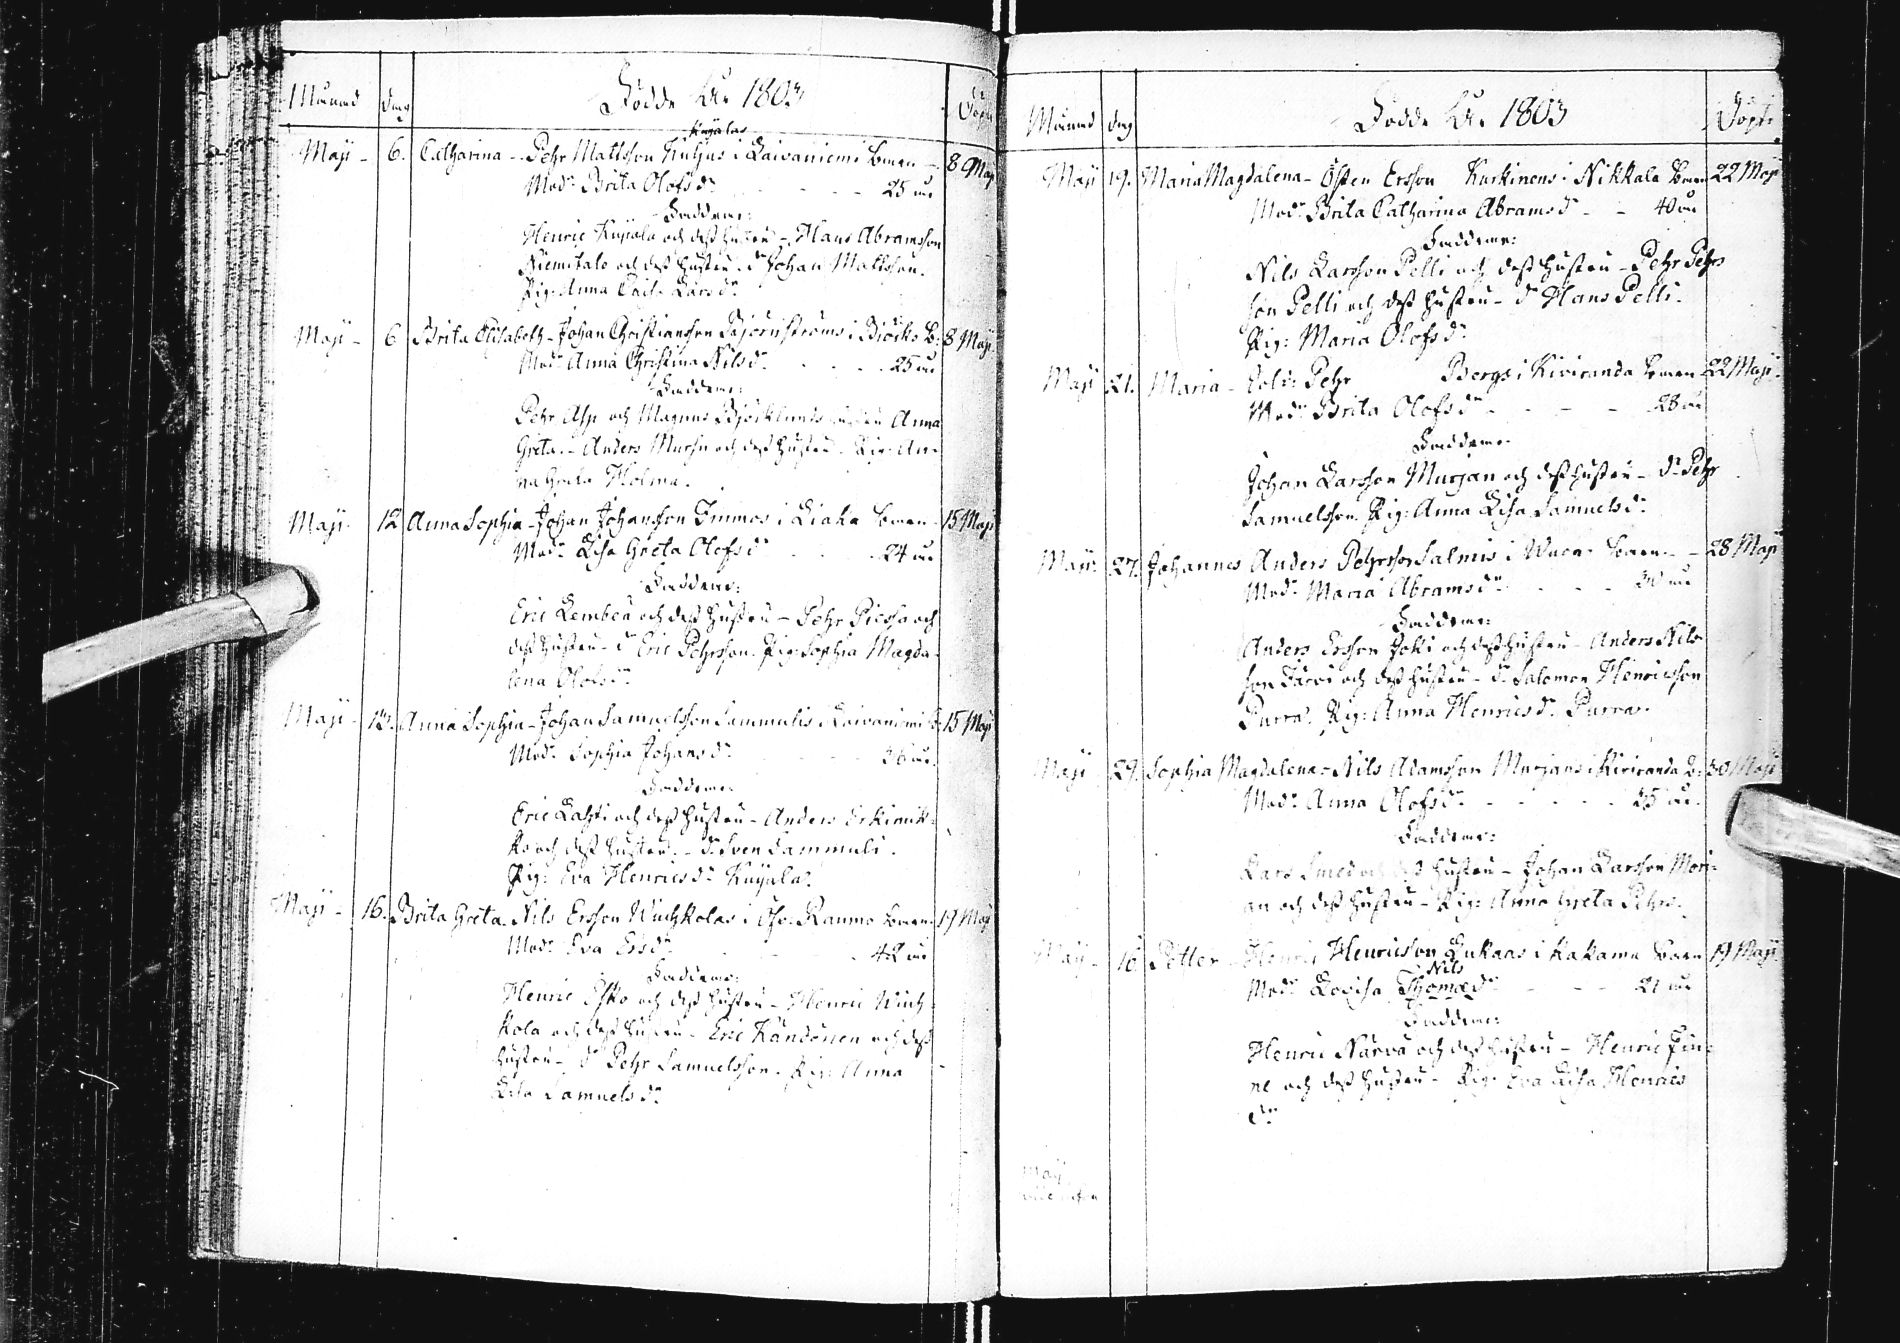 Månad dag Födde År 1803 Döpte
Kuyalas
Maji - 6. Catharina - Pehr Mattsson Kuhjus i Laivaniemi byman - 8 Maji
Modr Brita Olofsdr 25 år
Faddrare:
Henric Kuyala och dess hustru - Hans Abramsson
Niemitalo och dess hustru. dr Johan Mattsson.
Pig: Anna Cath. Larsdr
Maji - 6 Brita Elisabeth - Johan Christiansson Björnströms i Biörks B: 8 Maji.
Modr Anna Christina Nilsdr 25 år
Faddrare:
Pehr Asp och Magnus Björklunds hustru Anna
Greta. - Anders Mursu och dess hustru - Pig: An-
na Greta Holma.
Maji - 12 Anna Sophia - Johan Johansson Immos i Liaka byman - 15 Maji
Modr Lisa Greta Olofsdr 24 år
Faddrare:
Eric Lembea och dess hustru - Pehr Piessa och
dess hustru - dr Eric Pehrsson. Pig: Sophia Magda-
lena Olofsdr
Maji - 13. Anna Sophia - Johan Samuelsson Sammulis i Laivaniemi B: 15 Maji
Modr Sophia Johansdr 36 år.
Faddrare:
Eric Lahti och dess hustru - Anders Erkinik-
ko och dess hustru. - dr Sven Sammuli.
Pig: Eva Henricsdr Kuyala.
Maji - 16. Brita Greta. Nils Ersson Wuihkolas i Öfv. Raumo byman 17 Maji
Modr Eva Ersdr 42 år
Faddrare:
Henric Esko och dess hustru - Henric Wuih-
kola och dess hustru - Eric Kandonen och dess
hustru - dr Pehr Samuelsson. Pig: Anna
Lisa Samuelsdr
Månad dag Födde År 1803 Döpte
Maji 19. Maria Magdalena - Östen Ersson Kurkinens i Nikkala byman 22 Maji
Modr Brita Catharina Abramsdr - - 40 år
Faddrare:
Nils Larsson Pelli och dess hustru - Pehr Pehrs
son Pelli och dess hustru - dr Hans Pelli.
Pig: Maria Olofsdr
Maji 21. Maria - Sold: Pehr Bergs i Kiviranda byman 22 Maji.
Modr Brita Olofsdr - - - - 28 år
Faddrare
Johan Larsson Murjan och dess hustru - dr Pehr
Samuelsson. Pig: Anna Lisa Samuelsdr
Maji 27. Johannes Anders Pehrsson Salmis i byman - 28 Maji
Modr Maria Abramsdr 30 år
Faddrare:
Anders Ersson Joki och dess hustru - Anders Nils-
son Järvi och dess hustru - dr Salomon Henricsson
Purra. Pig: Anna Henricsdr Purra.
Maji 29. Sophia Magdalena - Nils Adamsson Murjans i Kiviranda B: 30 Maji
Modr Anna Olofsdr - - - - 25 år.
Faddrare:
Lars Smed och dess hustru - Johan Larsson Mori-
an och dess hustru - Pig: Anna Greta Pehrs.
Maji - 16 Petter - Henric Henricsson Lukaas i Kakama byman 19 Maji
Nils
Modr Lovisa Thomædr - - - 21 år
Faddrare:
Henric Närvä och dess hustru - Henric Fin-
ne och dess hustru - Pig: Eva Lisa Henrics
dr
Maji